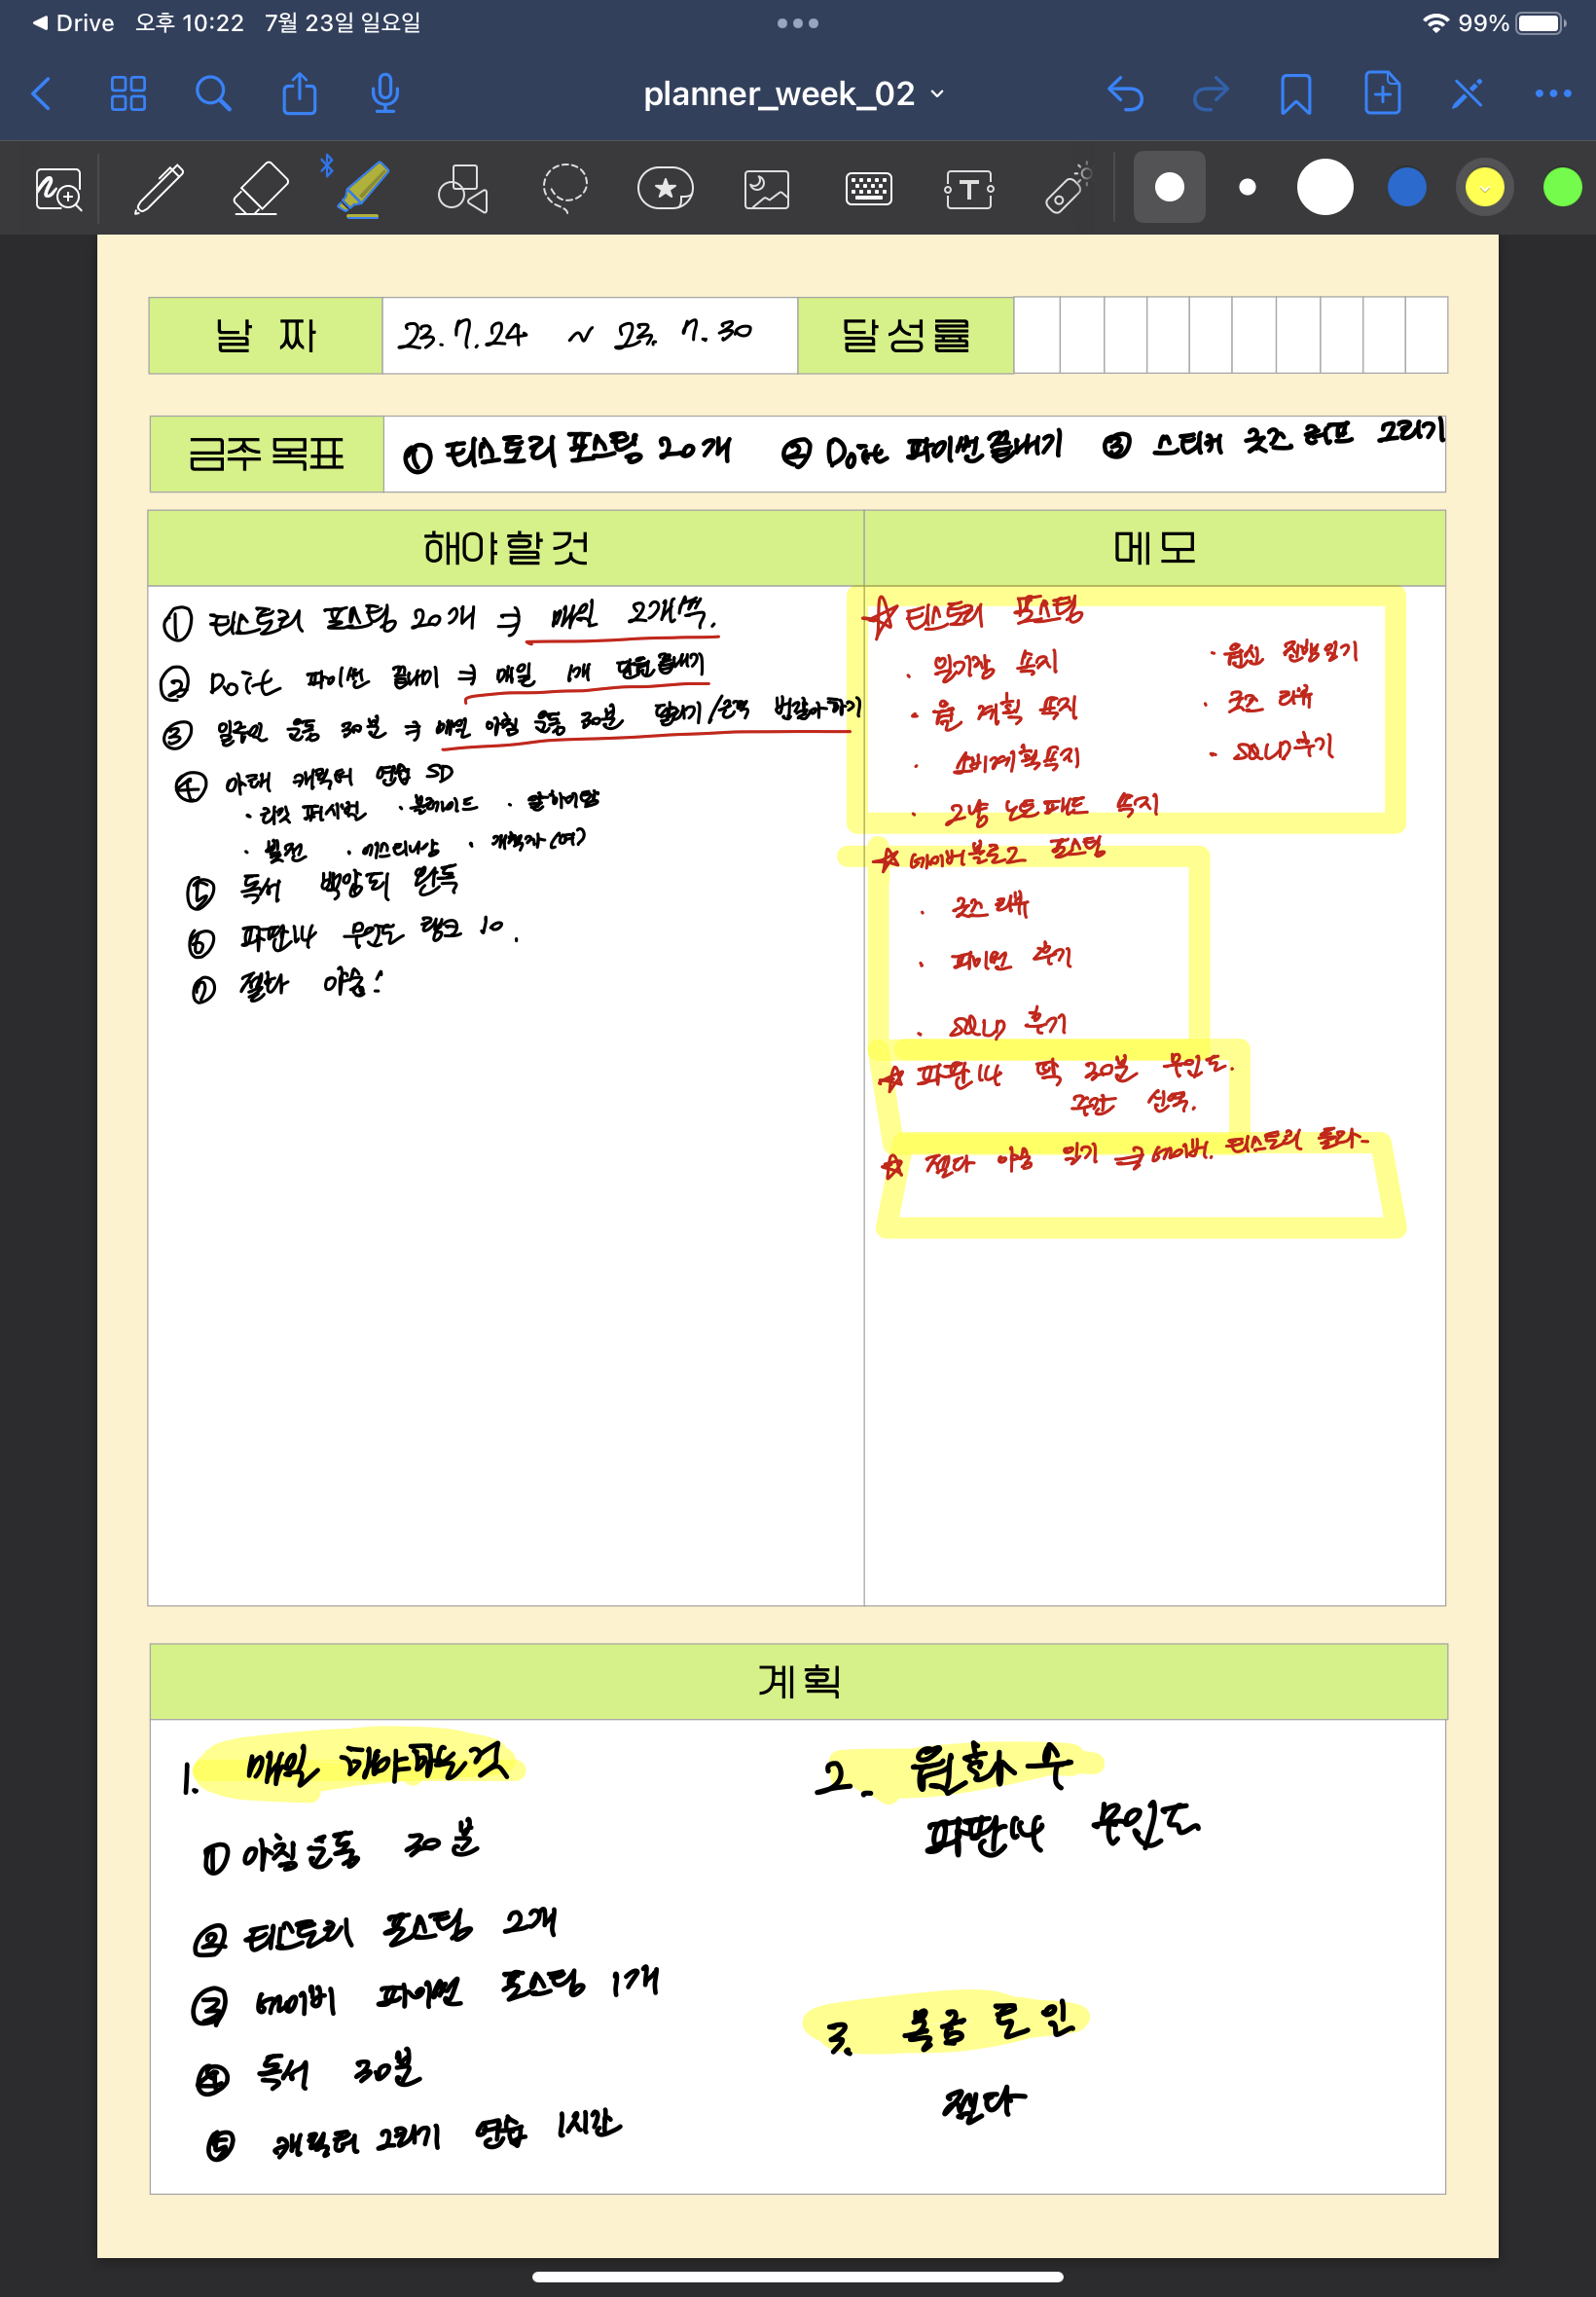 Drive 오후 10:22 7월 23일 일요일 99%
planner_week_02
날 짜 23.7.24 ~ 23.7.30 달성률
금주 목표 ① 티스토리 포스팅 20개 ② Doit 파이썬 끝내기 ③ 스티커 굿즈 러프 그리기
해야할것
① 티스토리 포스팅 20개 ⇒ 매일 2개씩.
② Doit 파이썬 끝내이 ⇒ 매일 1개 단원 끝내기
③ 일주일 운동 30분 ⇒ 매일 아침 운동 30분 달리기/근력 번갈아하기
④ 아래 캐릭터 연습 SD
· 라잇 퍼시벌 · 블레이드
· 개척자(여)
⑤ 독서 완독
⑥ 파판14 무인도 랭크 10.
⑦ 젤다 야숨!
메모
☆ 티스토리 포스팅
· 일기장 속지 · 원신 진행일기
· 월 계획 속지 · 굿즈 리뷰
· 소비계획속지 · SQLD후기
· 그냥 노트패드 속지
☆ 네이버블로그 포스팅
· 굿즈 리뷰
· 파이썬 후기
· SQLD 후기
☆ 파판14 딱 30분 무인도.
주간
☆ 젤다 야숨 일기 ⇒ 네이버. 티스토리 둘다-
계획
1. 매일 해야하는것
① 아침운동 30분
② 티스토리 포스팅 2개
③ 네이버 파이썬 포스팅 1개
④ 독서 30분
⑤ 캐릭터 그리기 연습 1시간
2. 월화수
파판14 무인도
3. 목금토일
젤다